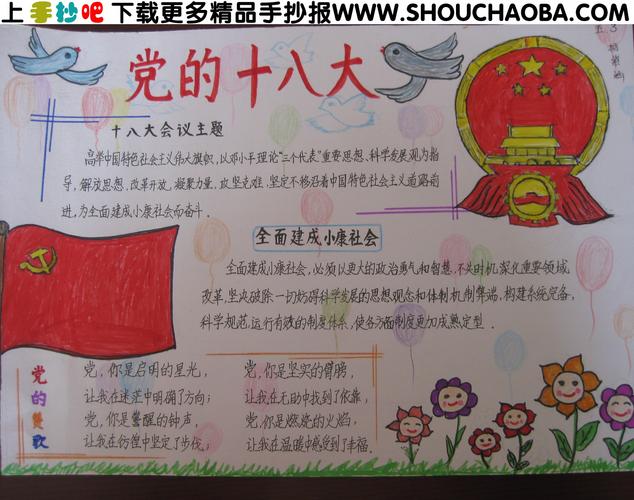 上手抄吧下载更多精品手抄报WWW.SHOUCHAOBA.COM
党的十八大
十八大会议主题
高举中国特色社会主义伟大旗帜，以邓小平理论“三个代表”重要思想、科学发展观为指
导，解放思想，改革开放，凝聚力量，攻坚克难，坚定不移沿着中国特色社会主义道路前
进，为全面建成小康社会而奋斗．
全面建成小康社会
全面建成小康社会，必须以更大的政治勇气和智慧，不失时机深化重要领域
改革，坚决破除一切妨碍科学发展的思想观念和体制机制弊端，构建系统完备，
科学规范，运行有效的制度体系，使各方面制度更加成熟定型．
党的赞歌
党，你是启明的星光，
让我在迷茫中明确了方向；
党，你是警醒的钟声，
让我在彷徨中坚定了步伐；
党，你是坚实的臂膀，
让我在无助中找到了依靠，
党，你是燃烧的火焰，
让我在温暖中感受到了幸福．